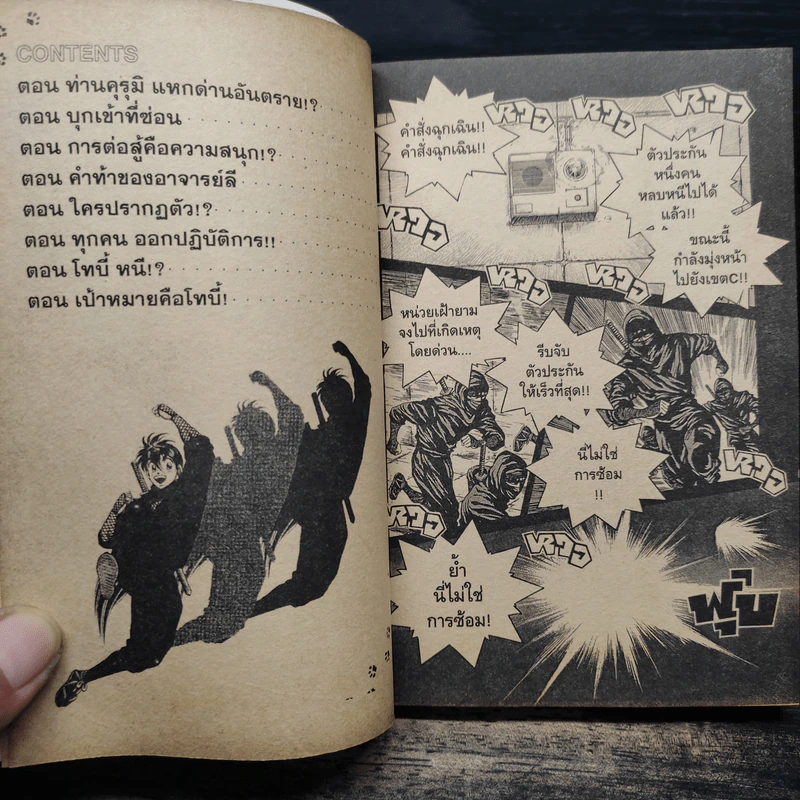 CONTENTS
ตอน ท่านคุรุมิ แหกด่านอันตราย!?
ตอน บุกเข้าที่ซ่อน
ตอน การต่อสู้คือความสนุก!?
ตอน คำท้าของอาจารย์ลี
ตอน ใครปรากฏตัว!?
ตอน ทุกคน ออกปฏิบัติการ!!
ตอน โทบี้ หนี!?
ตอน เป้าหมายคือโทบี้!
คำสั่งฉุกเฉิน!!
คำสั่งฉุกเฉิน!!
หวอ
หวอ
หวอ
ตัวประกัน
หนึ่งคน
หลบหนีไปได้
แล้ว!!
หวอ
ขณะนี้
กำลังมุ่งหน้า
ไปยังเขตC!!
หวอ
หวอ
หน่วยเฝ้ายาม
จงไปที่เกิดเหตุ
โดยด่วน....
รีบจับ
ตัวประกัน
ให้เร็วที่สุด!!
นี่ไม่ใช่
การซ้อม
!!
หวอ
หวอ
หวอ
ย้ำ
นี่ไม่ใช่
การซ้อม!
พุ่บ